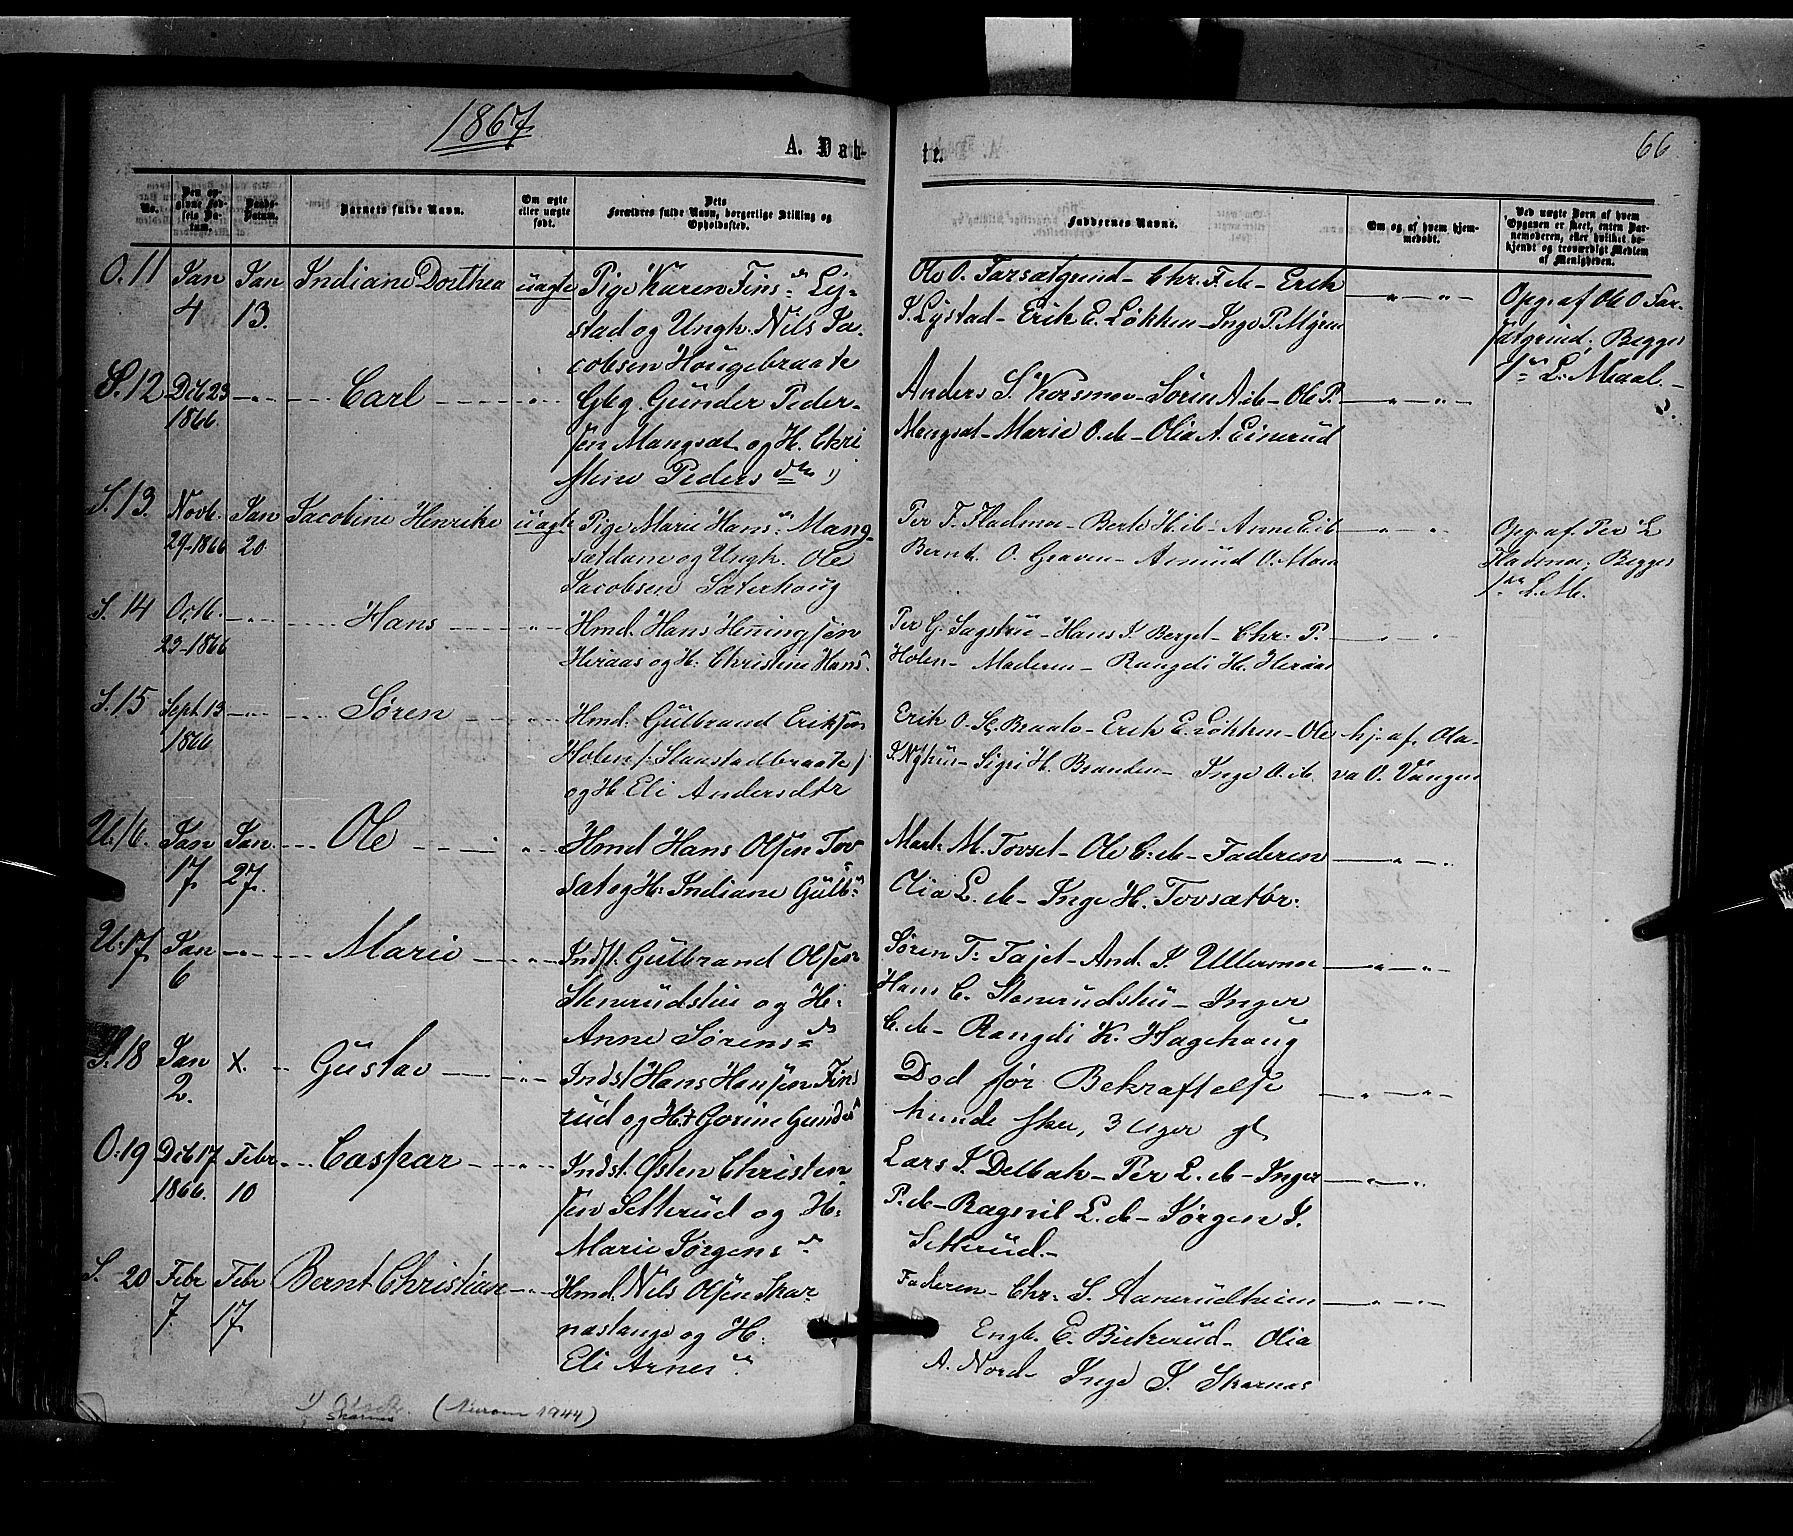 1867
66
A. Daab-
te.
No.
Den op-
givne Fød-
sels Da-
tum.
Daabs-
Datum.
Barnets fulde Navn.
Om ægte
eller uægte
født.
Dets
Forældres fulde Navn, borgerlige Stilling og
Opholdssted.
Faddernes Navne.
Om og af hvem hjem-
medøbt.
Ved uægte Børn af hvem
Opgaven er skeet, enten Bar-
nemoderen, eller hvilket be-
kjendt og troværdigt Medlem
af Menigheden.
O. 11 Jan 4 Jan 13. Indiane Dorthea uægte
Pige Karen Fins dr Ly-
stad og Ungk. Nils Ja-
cobsen Haugebraate
Ole O. Farsætgrind - Chr. F. de - Erik
S. Lystad - Erik E. Løkken - Inge P. Myren
Opg. af Ole O. Far-
sætgrind; Begges
1ste L. Maal.
S. 12 Deb 23 1866 Carl
Gbg. Gunder Peder-
sen Mangsæt og H. Chri
stine Peders dtr 1)
Anders S. Korsmo - Søren A. de - Ole P.
Mangsæt - Marie O. de - Olia A. Einerud
S. 13. Novb. 29-1866 Jan 20. Jacobine Henrike uægte
Pige Marie Hans dr Mang-
sætdam og Ungk. Ole
Jacobsen Sæterhoug
Per T. Fladmoe - Berte H. de - Anne E. de
Bernt O. Graven - Asmund O. Moen
Opg. af Per T.
Fladmoe; Begges
1ste L. M.
S. 14 Octb. 23-1866 Hans
Hmd. Hans Henningsen
Heraas og H. Christine Hans
Per G. Sagstue - Hans J. Berget - Chr. P.
Holen - Moderen - Rangdi H. Heraas
S. 15 Sept 13 1866 Søren
Hmd. Gulbrand Eriksen
Holen /: Skaastadbraaten /
og H. Eli Andersdtr
Erik O. Sl. Braate - Erik E. Løkken - Ole
J. Nyhus - Sigri H. Branden - Inge O. de
hj. af Ola-
va O. Vangen
U. 16. Jan 17. Jan 27. Ole
Hmd Hans Olsen Tov
sæt og H. Indiane Gulb dr
Mart. M. Tovset - Ole C. de - Faderen
Olia L. de - Inge H. Tovsætør.
U. 17. Jan 6 Marie
Indst. Gulbrand Olsen
Stenerudstue og H.
Anne Sørens dr
Søren T. Tajet - And. J. Ullernmoe
Hans C. Stenerudstu - Inger
C. de - Rangdi K. Hagehaug
S. 18 Jan 2. X. Gustav
Indst Hans Hansen Fins
rud og H. Gorine Gunders
Død før Bekræftelse
kunde skee, 3 Uger gl
O. 19 Deb 17 1866. Febr 10 Caspar
Indst. Østen Christen-
sen Setterud og H.
Marie Jørgens dr
Lars J. Delbak - Per L. de - Inger
P. de - Ragnil L. de - Jørgen J.
Setterud -
S. 20 Febr 7 Febr 17. Bernt Christian
Hmd. Nils Olsen Skar-
næslange og H.
Eli Arnes dr
Faderen - Chr. S. Aanerudheim
Engb. E. Bickerud - Olia
A. Nord - Inge J. Skarnæs
1)
Skarnes
( 1944)